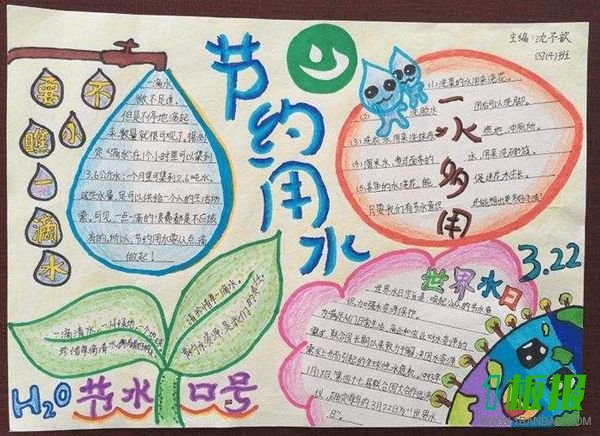 主编:沈予歆
四(4)班
节约用水
不
小
瞧
一
滴
水
一滴水,
微不足道。
但是不停地滴起
来,数量就很可观了。据测
定,“滴水”在1个小时里可以集到
3.6公斤水;1个月里可集到2.6吨水。
这些水量,足可以供给一个人的生活所
需。可见,一点一滴的浪费都是不应该
有的。所以,节约用水要从点滴
做起!
一水多用
(1)洗菜的水用来浇花。
洗脸水
用后可以洗脚。
洗衣水用来洗拖把
拖地、冲厕所。
(4)淘米水、煮过面条的
水,用来洗碗筷。
(5)养鱼的水浇花,能
促进花木生长。
只要我们有节水意识
世界水日
3.22
世界水日宗旨是唤起公众的节水意
识,加强水资源保护。
为满足人们日常生活、商业和农业对水资源的
需求,联合国长期以来致力于解决因水资源
需求上升而引起的全球性水危机。1993年
1月18日,第四十七届联合国大会作出决
议,确定每年的3月22日为“世界水
日”。
珍惜每滴清水
请珍惜每一滴水。
H2O
节水
口号
板报
WWW.1BANBAO.COM